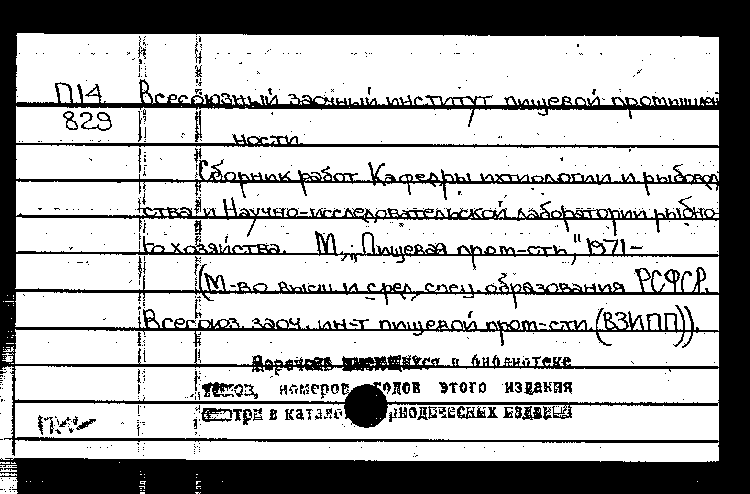 П14 Всесоюзный заочный институт пищевой промышлен
829
ности.
Сборник работ Кафедры ихтиологии и рыбовод
ства и Научно-исследовательской лаборатории рыбно
го хозяйства. М., „Пищевая пром-сть", 1971–
(М-во высш. и сред. спец. образования РСФСР.
Всесоюз. заоч. ин-т пищевой пром-сти (ВЗИПП)).
Перечень имеющихся в библиотеке
томов, номеров, годов этого издания
смотри в каталоге периодических изданий